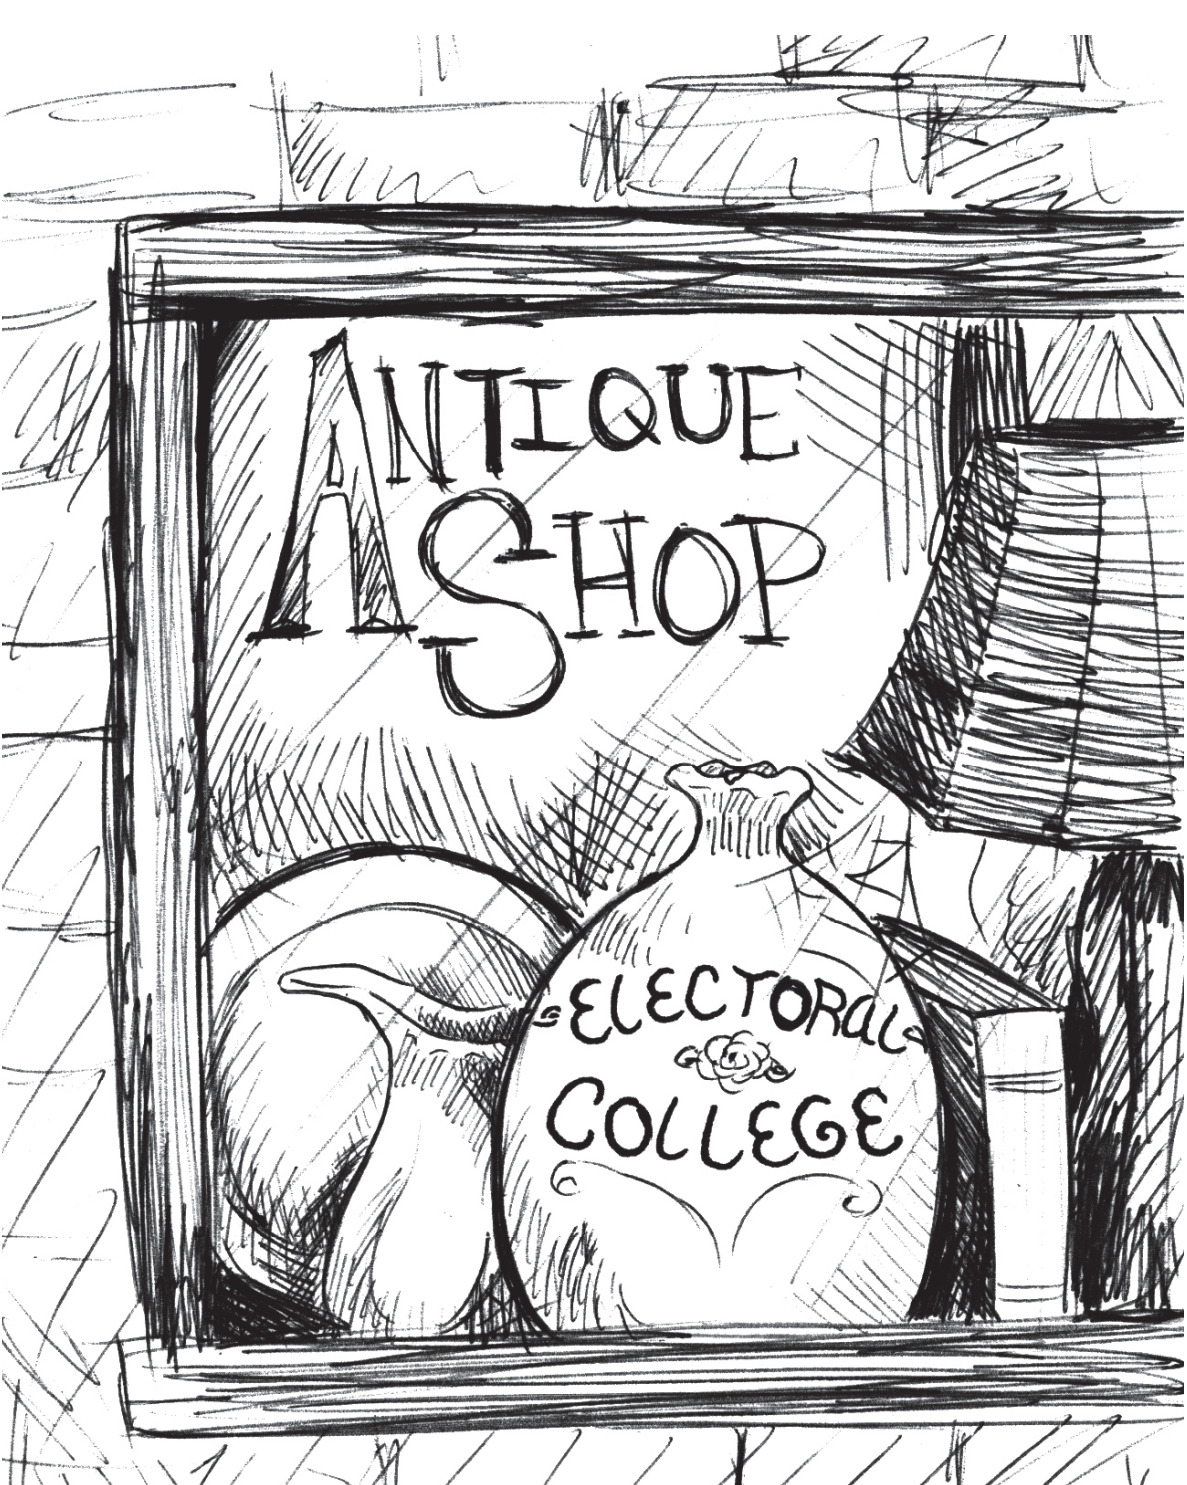 ANTIQUE
SHOP
ELECTORAL
COLLEGE